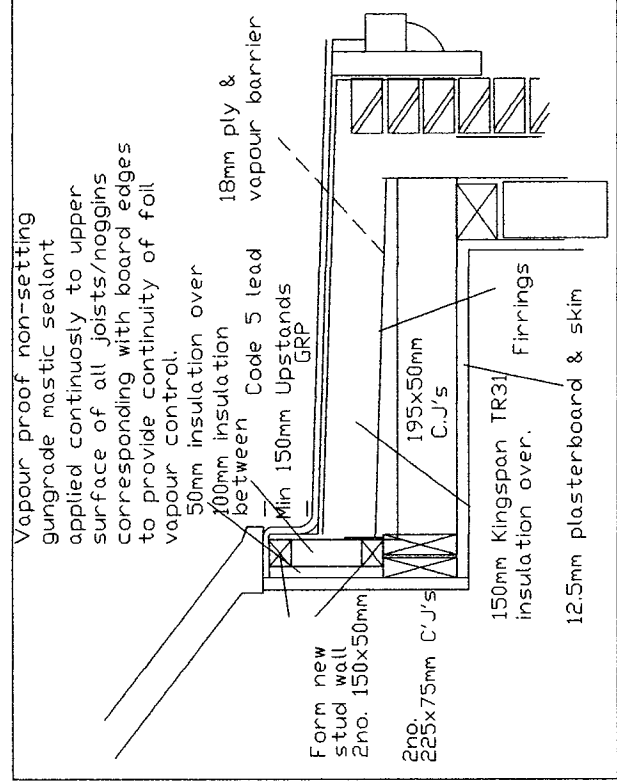 Vapour proof non-setting
gungrade mastic sealant
applied continuosly to upper
surface of all joists/noggins
corresponding with board edges
to provide continuity of foil
vapour control.
50mm insulation over
100mm insulation
between
Code 5 lead
Min 150mm Upstands
GRP
18mm ply &
vapour barrier
Form new
stud wall
2no. 150x50mm
2no.
225x75mm C'J's
195x50mm
C.J's
Firrings
150mm Kingspan TR31
insulation over.
12.5mm plasterboard & skim